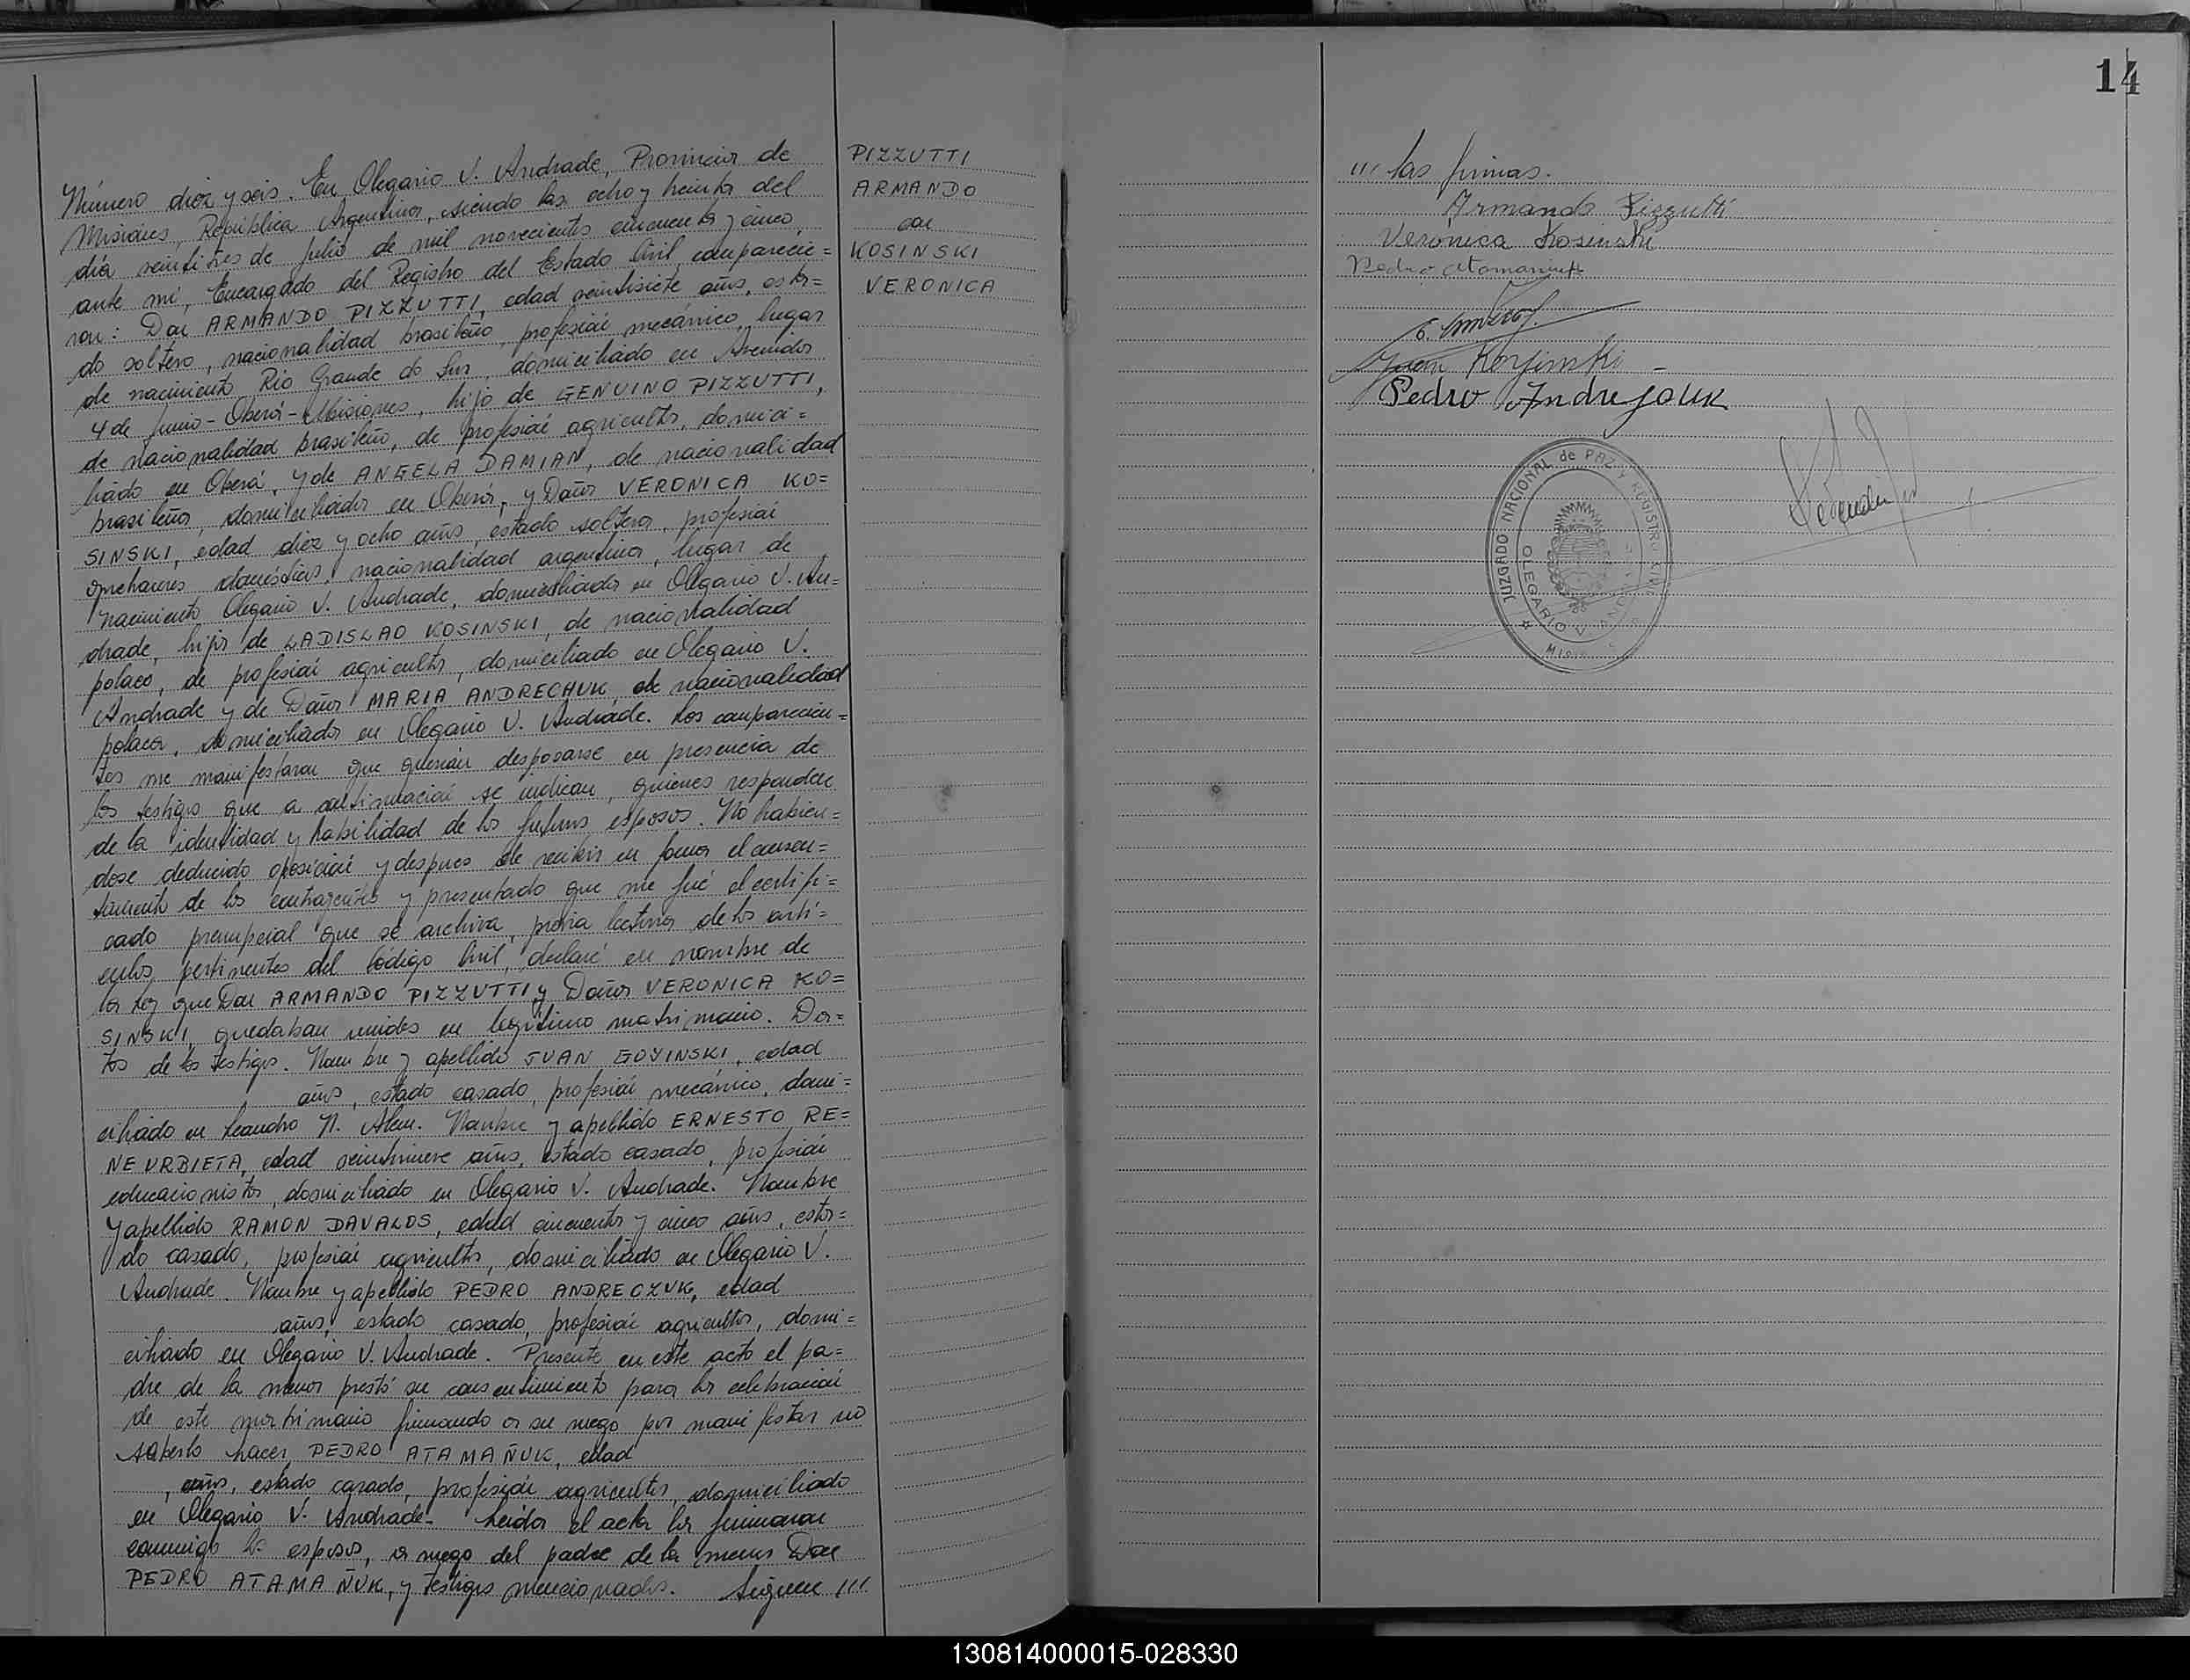 Número diez y seis. En Olegario V. Andrade, Provincia de
Misiones, República Argentina, siendo las ocho y treinta del
día veintitres de Julio de mil novecientos cincuenta y cinco,
ante mí, Encargado del Registro del Estado Civil comparecie=
ron: Don ARMANDO PIZZUTTI, edad veintisiete años, esta=
do soltero, nacionalidad brasileño, profesión mecánico, lugar
de nacimiento Rio Grande do Sur, domiciliado en Avenida
4 de Junio - Oberá - Misiones, hijo de GENUINO PIZZUTTI,
de nacionalidad brasileño, de profesión agricultor, domici=
liado en Oberá, y de ANGELA DAMIAN, de nacionalidad
brasileña, domiciliada en Oberá, y Doña VERONICA KO=
SINSKI, edad diez y ocho años, estado soltera, profesión
quehaceres domésticos, nacionalidad argentina, lugar de
nacimiento Olegario V. Andrade, domiciliada en Olegario V. An=
drade, hija de LADISLAO KOSINSKI, de nacionalidad
polaco, de profesión agricultor, domiciliado en Olegario V.
Andrade y de Doña MARIA ANDRECHUK, de nacionalidad
polaca, domiciliada en Olegario V. Andrade. Los comparecien=
tes me manifestaron que querían desposarse en presencia de
los testigos que a continuación se indican, quienes responden
de la identidad y habilidad de los futuros esposos. No habien=
dose deducido oposición y despues de recibir en forma el consen=
timiento de los contrayentes y presentado que me fué el certifi=
cado prenupcial que se archiva, previa lectura de los artí=
culos pertinentes del Código Civil, declaré en nombre de
la Ley que Don ARMANDO PIZZUTTI y Doña VERONICA KO=
SINSKI, quedaban unidos en legítimo matrimonio. Da=
tos de los testigos. Nombre y apellido JUAN GOYINSKI, edad
años, estado casado, profesión mecánico, domi=
ciliado en Leandro N. Alem. Nombre y apellido ERNESTO RE=
NE URBIETA, edad veintinueve años, estado casado, profesión
educacionista, domiciliado en Olegario V. Andrade. Nombre
y apellido RAMON DAVALOS, edad cincuenta y cinco años, esta=
do casado, profesión agricultor, domiciliado en Olegario V.
Andrade. Nombre y apellido PEDRO ANDRECZUK, edad
años, estado casado, profesión agricultor, domi=
ciliado en Olegario V. Andrade. Presente en este acto el pa=
dre de la menor prestó su consentimiento para la celebración
de este matrimonio firmando a su ruego por manifestar no
saberlo hacer, PEDRO ATAMAÑUK, edad
, años, estado casado, profesión agricultor, domiciliado
en Olegario V. Andrade. Leída el acta la firmaron
conmigo los esposos, a ruego del padre de la menor Don
PEDRO ATAMAÑUK, y testigos mencionados. Siguen ///
PIZZUTTI
ARMANDO
con
KOSINSKI
VERONICA
14
/// las firmas.
Armando Pizzutti
Verónica Kosinski
Pedro Atamaniuk
Juan Koyinski -
Pedro Andrejouk
JUZGADO NACIONAL de PAZ Y REGISTRO CIVIL
OLEGARIO V. ANDRADE
130814000015-028330